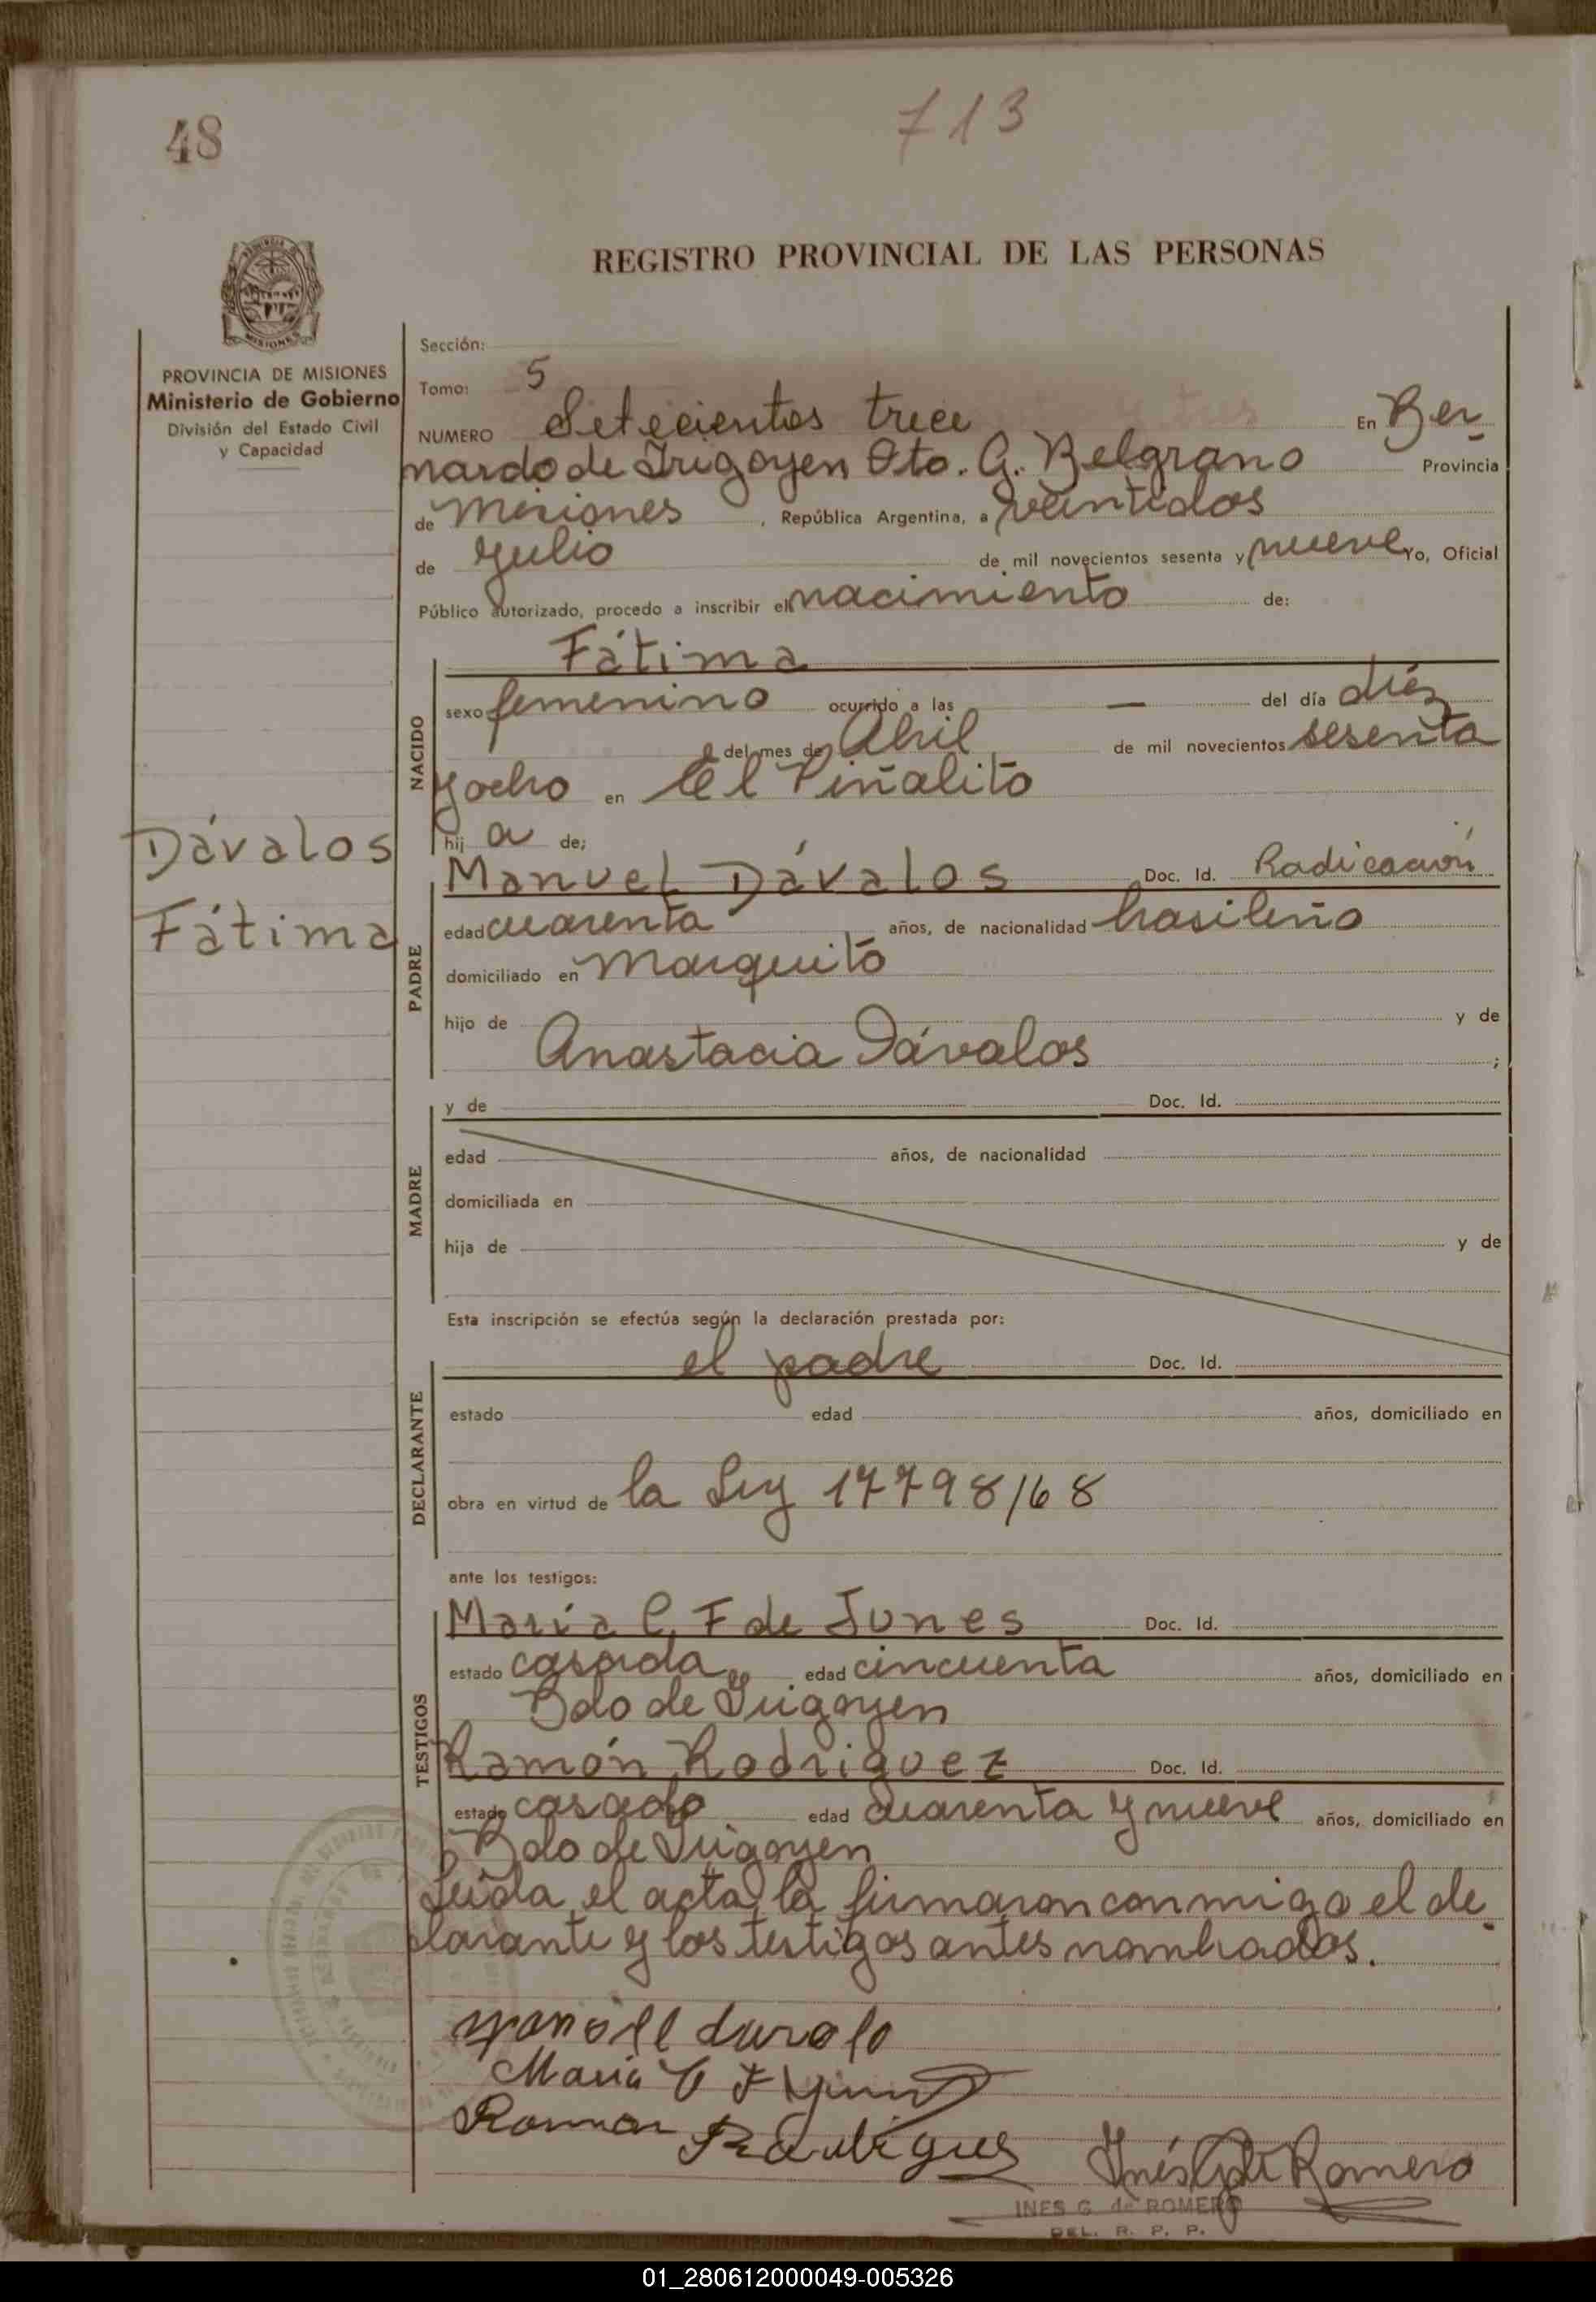 48
713
REGISTRO PROVINCIAL DE LAS PERSONAS
PROVINCIA DE MISIONES
Ministerio de Gobierno
División del Estado Civil
y Capacidad
Sección:
Tomo: 5
NUMERO Setecientos trece En Ber-
nardo de Irigoyen Dto. G. Belgrano Provincia
de Misiones, República Argentina, a veintidos
de Julio de mil novecientos sesenta y nueve Yo, Oficial
Público autorizado, procedo a inscribir el nacimiento de:
NACIDO
Fátima
sexo femenino ocurrido a las — del día diéz
del mes de Abril de mil novecientos sesenta
y ocho en El Piñalito
hij a de;
Dávalos
Fátima
PADRE
Manuel Dávalos Doc. Id. Radicación
edad cuarenta años, de nacionalidad brasileño
domiciliado en Marquito
hijo de y de
Anastacia Dávalos ;
MADRE
y de Doc. Id.
edad años, de nacionalidad
domiciliada en
hija de y de
Esta inscripción se efectúa según la declaración prestada por:
DECLARANTE
el padre Doc. Id.
estado edad años, domiciliado en
obra en virtud de la Ley 17798/68
ante los testigos:
TESTIGOS
María C. F de Junes Doc. Id.
estado casada edad cincuenta años, domiciliado en
Bdo de Irigoyen
Ramón Rodriguez Doc. Id.
estado casado edad cuarenta y nueve años, domiciliado en
Bdo de Irigoyen
Leida el acta, la firmaron conmigo el de-
clarante y los testigos antes nombrados.
Maria C F
Ramon Rodrigues
Inés G de Romero
INES G. de ROMERO
DEL. R. P. P.
01_280612000049-005326